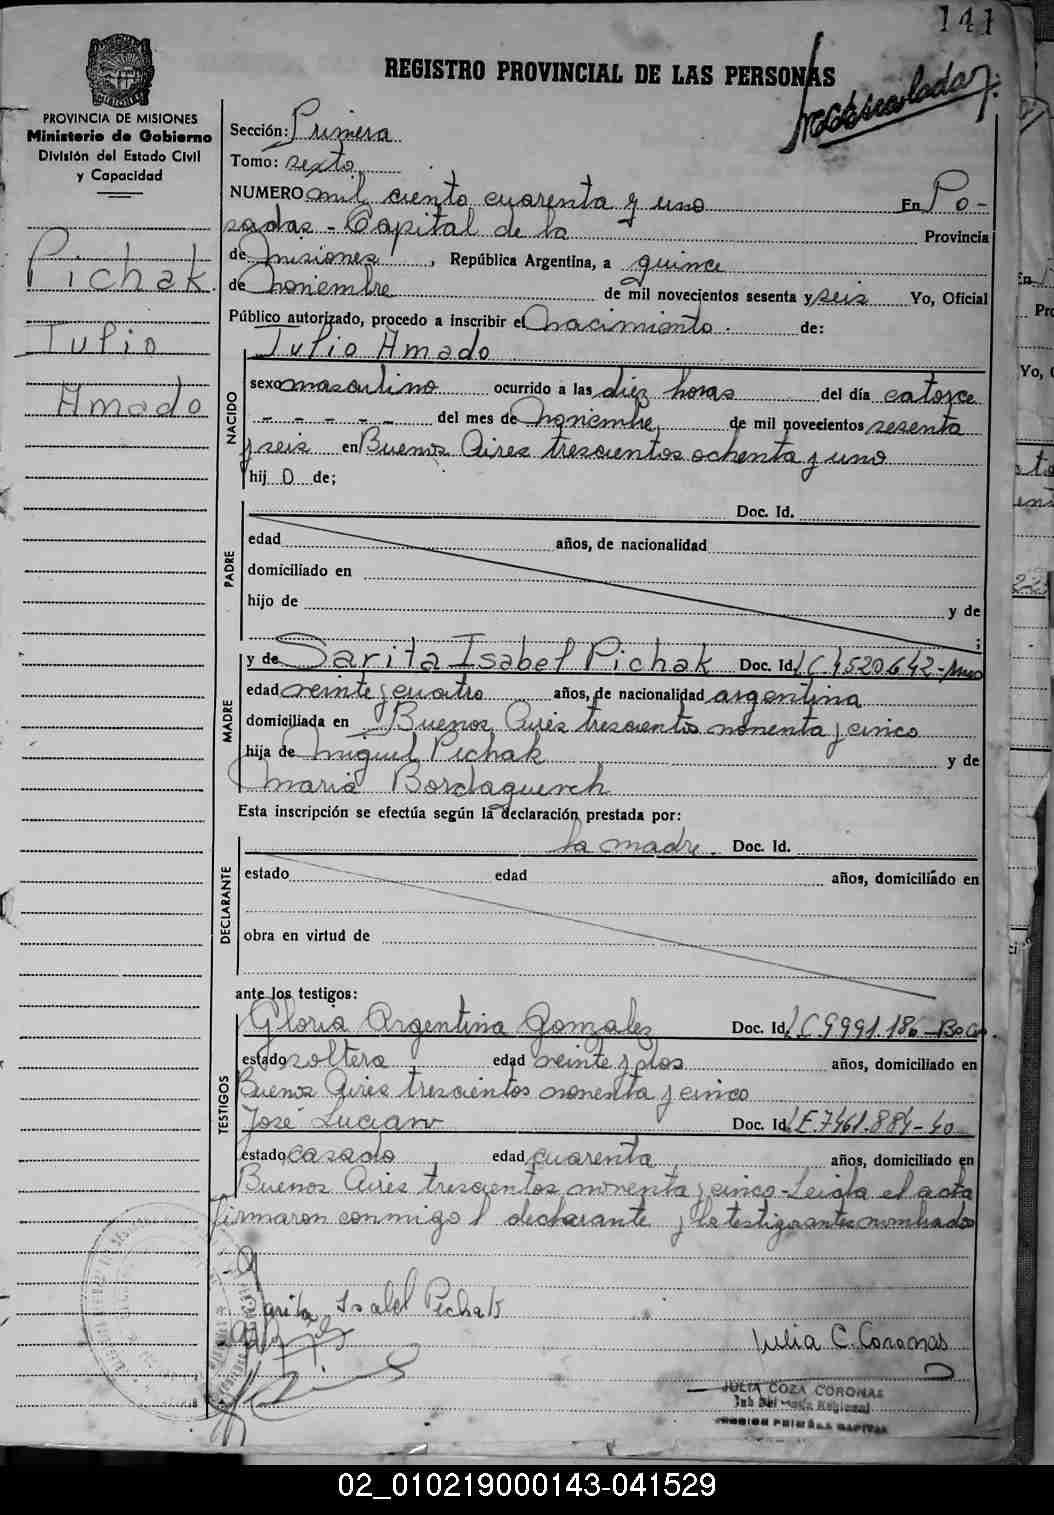 141
REGISTRO PROVINCIAL DE LAS PERSONAS
PROVINCIA DE MISIONES
Ministerio de Gobierno
División del Estado Civil
y Capacidad
Pichak
Julio
Amado
Sección: Primera
Tomo: sexto
NUMERO mil ciento cuarenta y uno En Po-
sadas - Capital de la Provincia
de Misiones, República Argentina, a quince
de Noviembre de mil novecientos sesenta y seis Yo, Oficial
Público autorizado, procedo a inscribir el Nacimiento. de:
Julio Amado
NACIDO
sexo masculino ocurrido a las diez horas del día catorce
- - - - - del mes de Noviembre de mil novecientos sesenta
y seis en Buenos Aires trescientos ochenta y uno
hij o de;
PADRE
Doc. Id.
edad años, de nacionalidad
domiciliado en
hijo de y de
;
MADRE
y de Sarita Isabel Pichak Doc. Id. L.C. 4520.642-
edad veinte y cuatro años, de nacionalidad argentina
domiciliada en Buenos Aires trescientos noventa y cinco
hija de Miguel Pichak y de
Maria
Esta inscripción se efectúa según la declaración prestada por:
la madre. Doc. Id.
DECLARANTE
estado edad años, domiciliado en
obra en virtud de
ante los testigos:
TESTIGOS
Gloria Argentina Gonzalez Doc. Id. L.C 9991.186-
estado soltera edad veinte y dos años, domiciliado en
Buenos Aires trescientos noventa y cinco
José Luciano Doc. Id. L.E. 7461.884-40
estado casado edad cuarenta años, domiciliado en
Buenos Aires trescientos noventa y cinco - Leida el acta
firmaron conmigo l declarante y los testigos antes nombrados
Sarita Isabel Pichak
Julia C. Coronas
JULIA COZA CORONAS
SECCION PRIMERA CAPITAL
02_010219000143-041529